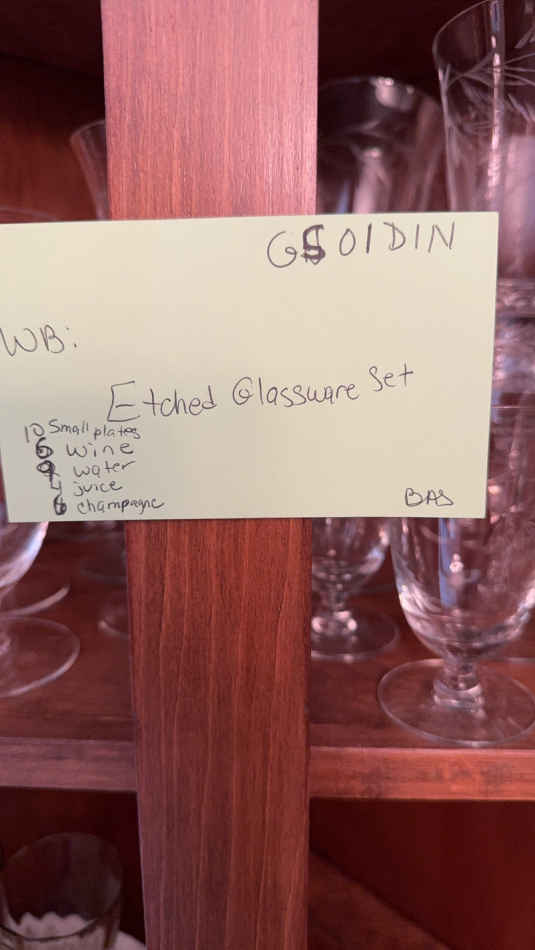 GS01DIN
WB:
Etched Glassware Set
10 Small plates
6 wine
water
4 juice
6 champagne
BAS